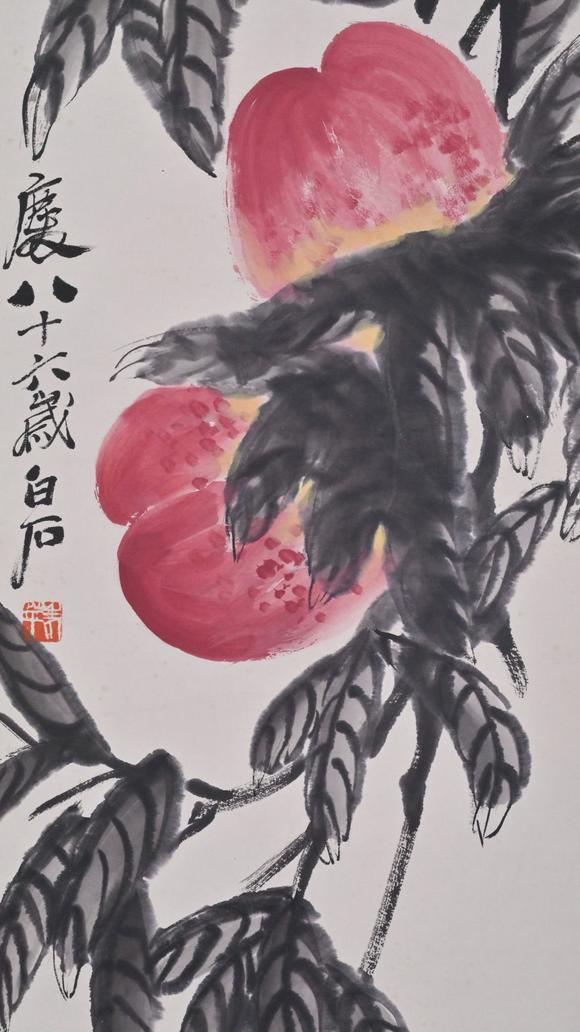 慶八十六歲白石